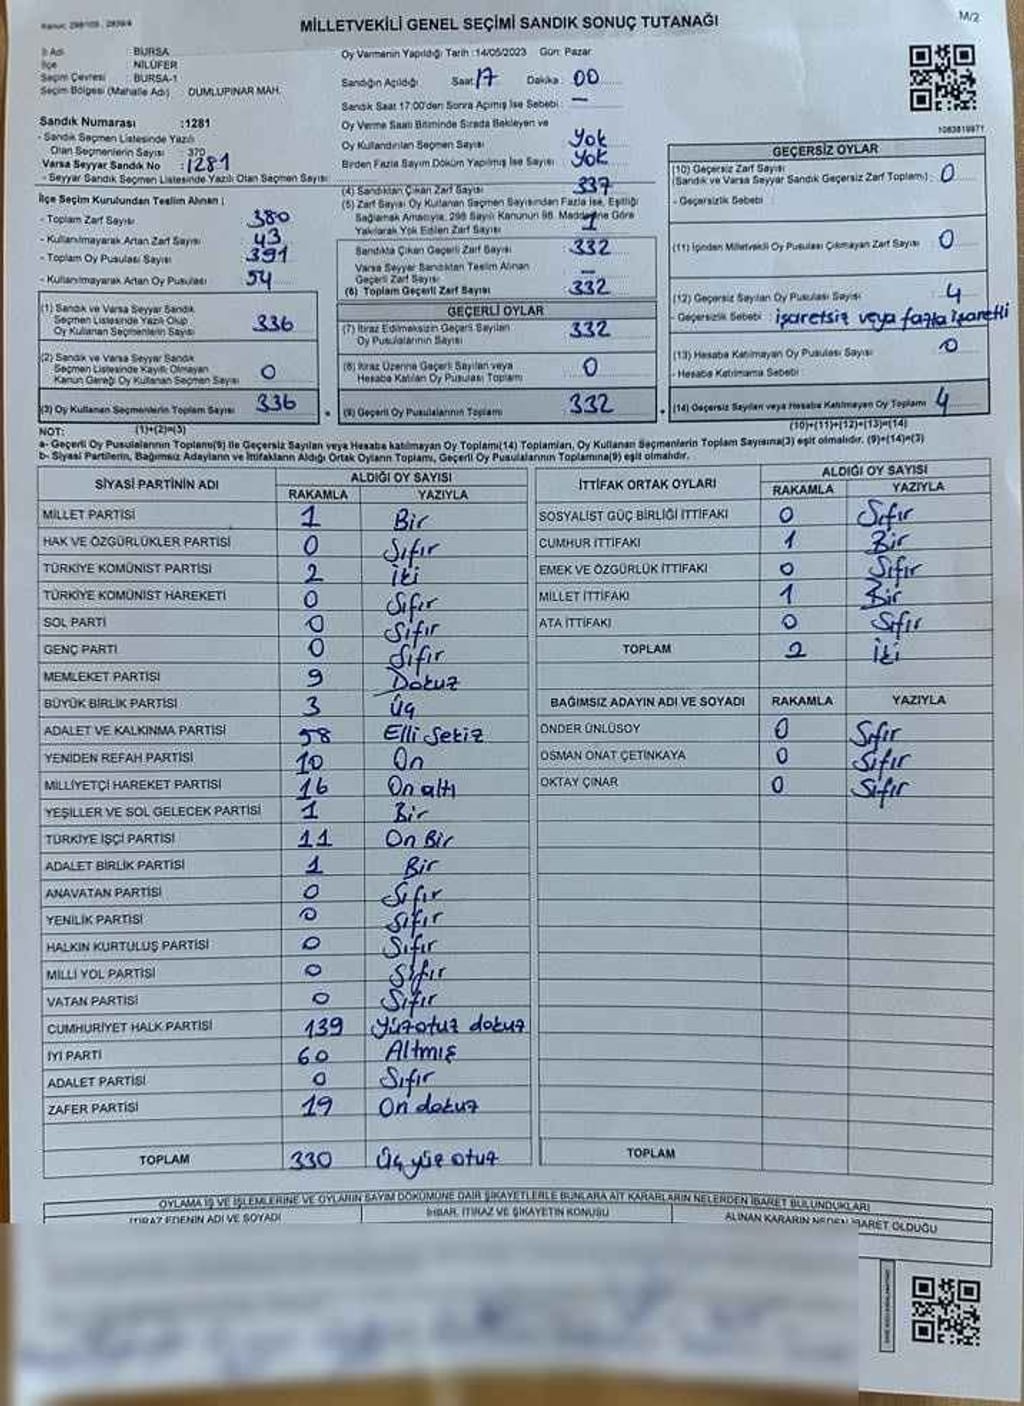 MİLLETVEKİLİ GENEL SEÇİMİ SANDIK SONUÇ TUTANAĞI
M/2
İl Adı : BURSA
İlçe : NİLÜFER
Seçim Çevresi : BURSA-1
Seçim Bölgesi (Mahalle Adı) : DUMLUPINAR MAH.
Sandık Numarası : 1281
- Sandık Seçmen Listesinde Yazılı
Olan Seçmenlerin Sayısı : 370
Varsa Seyyar Sandık No : 1281
- Seyyar Sandık Seçmen Listesinde Yazılı Olan Seçmen Sayısı
Oy Vermenin Yapıldığı Tarih : 14/05/2023 Gün: Pazar
Sandığın Açıldığı Saat 17 Dakika : 00
Sandık Saat 17:00'den Sonra Açılmış İse Sebebi : —
Oy Verme Saati Bitiminde Sırada Bekleyen ve
Oy Kullandırılan Seçmen Sayısı Yok
Birden Fazla Sayım Döküm Yapılmış İse Sayısı Yok
(4) Sandıktan Çıkan Zarf Sayısı 337
(5) Zarf Sayısı Oy Kullanan Seçmen Sayısından Fazla İse, Eşitliği
Sağlamak Amacıyla, 298 Sayılı Kanunun 98. Maddesine Göre
Yakılarak Yok Edilen Zarf Sayısı 1
1083819971
İlçe Seçim Kurulundan Teslim Alınan ;
- Toplam Zarf Sayısı : 380
- Kullanılmayarak Artan Zarf Sayısı : 43
- Toplam Oy Pusulası Sayısı : 391
- Kullanılmayarak Artan Oy Pusulası : 54
(1) Sandık ve Varsa Seyyar Sandık
Seçmen Listesinde Yazılı Olup
Oy Kullanan Seçmenlerin Sayısı 336
(2) Sandık ve Varsa Seyyar Sandık
Seçmen Listesinde Kayıtlı Olmayan
Kanun Gereği Oy Kullanan Seçmen Sayısı 0
(3) Oy Kullanan Seçmenlerin Toplam Sayısı 336
(1)+(2)=(3)
Sandıkta Çıkan Geçerli Zarf Sayısı 332
Varsa Seyyar Sandıktan Teslim Alınan
Geçerli Zarf Sayısı —
(6) Toplam Geçerli Zarf Sayısı 332
GEÇERLİ OYLAR
(7) İtiraz Edilmeksizin Geçerli Sayılan
Oy Pusulalarının Sayısı 332
(8) İtiraz Üzerine Geçerli Sayılan veya
Hesaba Katılan Oy Pusulası Toplamı 0
(9) Geçerli Oy Pusulalarının Toplamı 332
GEÇERSİZ OYLAR
(10) Geçersiz Zarf Sayısı
(Sandık ve Varsa Seyyar Sandık Geçersiz Zarf Toplamı) : 0
- Geçersizlik Sebebi :
(11) İçinden Milletvekili Oy Pusulası Çıkmayan Zarf Sayısı 0
(12) Geçersiz Sayılan Oy Pusulası Sayısı 4
- Geçersizlik Sebebi : işaretsiz veya fazla işaretli
(13) Hesaba Katılmayan Oy Pusulası Sayısı 0
- Hesaba Katılmama Sebebi
(14) Geçersiz Sayılan veya Hesaba Katılmayan Oy Toplamı 4
(10)+(11)+(12)+(13)=(14)
NOT:
a- Geçerli Oy Pusulalarının Toplamı(9) ile Geçersiz Sayılan veya Hesaba katılmayan Oy Toplamı(14) Toplamları, Oy Kullanan Seçmenlerin Toplam Sayısına(3) eşit olmalıdır. (9)+(14)=(3)
b- Siyasi Partilerin, Bağımsız Adayların ve İttifakların Aldığı Ortak Oyların Toplamı, Geçerli Oy Pusulalarının Toplamına(9) eşit olmalıdır.
SİYASİ PARTİNİN ADI ALDIĞI OY SAYISI
RAKAMLA YAZIYLA
MİLLET PARTİSİ 1 Bir
HAK VE ÖZGÜRLÜKLER PARTİSİ 0 Sıfır
TÜRKİYE KOMÜNİST PARTİSİ 2 İki
TÜRKİYE KOMÜNİST HAREKETİ 0 Sıfır
SOL PARTİ 0 Sıfır
GENÇ PARTİ 0 Sıfır
MEMLEKET PARTİSİ 9 Dokuz
BÜYÜK BİRLİK PARTİSİ 3 Üç
ADALET VE KALKINMA PARTİSİ 58 Elli Sekiz
YENİDEN REFAH PARTİSİ 10 On
MİLLİYETÇİ HAREKET PARTİSİ 16 On altı
YEŞİLLER VE SOL GELECEK PARTİSİ 1 Bir
TÜRKİYE İŞÇİ PARTİSİ 11 On Bir
ADALET BİRLİK PARTİSİ 1 Bir
ANAVATAN PARTİSİ 0 Sıfır
YENİLİK PARTİSİ 0 Sıfır
HALKIN KURTULUŞ PARTİSİ 0 Sıfır
MİLLİ YOL PARTİSİ 0 Sıfır
VATAN PARTİSİ 0 Sıfır
CUMHURİYET HALK PARTİSİ 139 Yüzotuz dokuz
İYİ PARTİ 60 Altmış
ADALET PARTİSİ 0 Sıfır
ZAFER PARTİSİ 19 On dokuz
TOPLAM 330 Üç yüz otuz
İTTİFAK ORTAK OYLARI ALDIĞI OY SAYISI
RAKAMLA YAZIYLA
SOSYALİST GÜÇ BİRLİĞİ İTTİFAKI 0 Sıfır
CUMHUR İTTİFAKI 1 Bir
EMEK VE ÖZGÜRLÜK İTTİFAKI 0 Sıfır
MİLLET İTTİFAKI 1 Bir
ATA İTTİFAKI 0 Sıfır
TOPLAM 2 İki
BAĞIMSIZ ADAYIN ADI VE SOYADI RAKAMLA YAZIYLA
ÖNDER ÜNLÜSOY 0 Sıfır
OSMAN ONAT ÇETİNKAYA 0 Sıfır
OKTAY ÇINAR 0 Sıfır
TOPLAM
OYLAMA İŞ VE İŞLEMLERİNE VE OYLARIN SAYIM DÖKÜMÜNE DAİR ŞİKAYETLERLE BUNLARA AİT KARARLARIN NELERDEN İBARET BULUNDUKLARI
İTİRAZ EDENİN ADI VE SOYADI İHBAR, İTİRAZ VE ŞİKAYETİN KONUSU ALINAN KARARIN NEDEN İBARET OLDUĞU